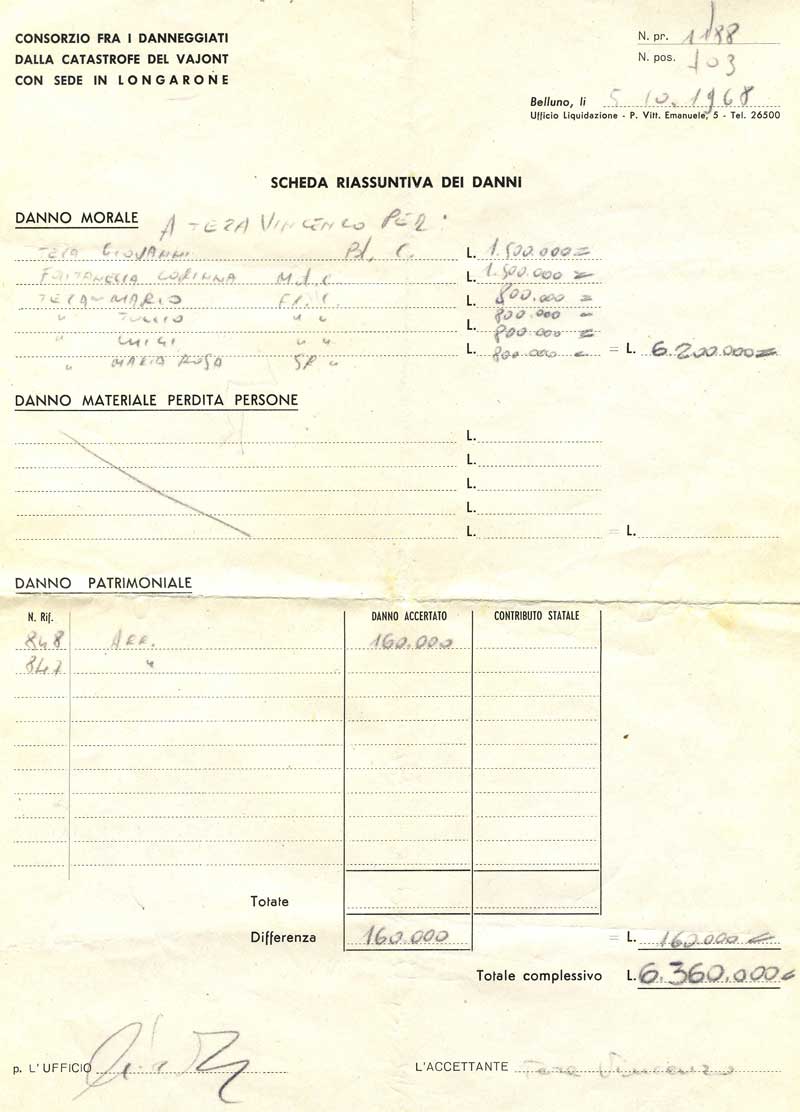 CONSORZIO FRA I DANNEGGIATI
DALLA CATASTROFE DEL VAJONT
CON SEDE IN LONGARONE
N. pr. 1188
N. pos. 103
Belluno, li 5.10.1968
Ufficio Liquidazione - P. Vitt. Emanuele, 5 - Tel. 26500
SCHEDA RIASSUNTIVA DEI DANNI
DANNO MORALE A TEZA VINCENCO PER:
TEZA GIOVANNI P.d. C. L. 1.500.000=
FONTANELLA CORINNA M.d.C. L. 1.500.000=
TEZA MARIO Fr. C. L. 800.000=
" TULLIO " " L. 800.000=
" LUIGI " " 800.000=
" MARIA ROSA SR " L. 800.000= = L. 6.200.000=
DANNO MATERIALE PERDITA PERSONE
L.
L.
L.
L.
L. = L.
DANNO PATRIMONIALE
N. Rif. DANNO ACCERTATO CONTRIBUTO STATALE
848 ARR. 160.000
847 "
Totate
Differenza 160.000 = L. 160.000=
Totale complessivo L. 6.360.000=
p. L'UFFICIO
L'ACCETTANTE Teza Vincenzo